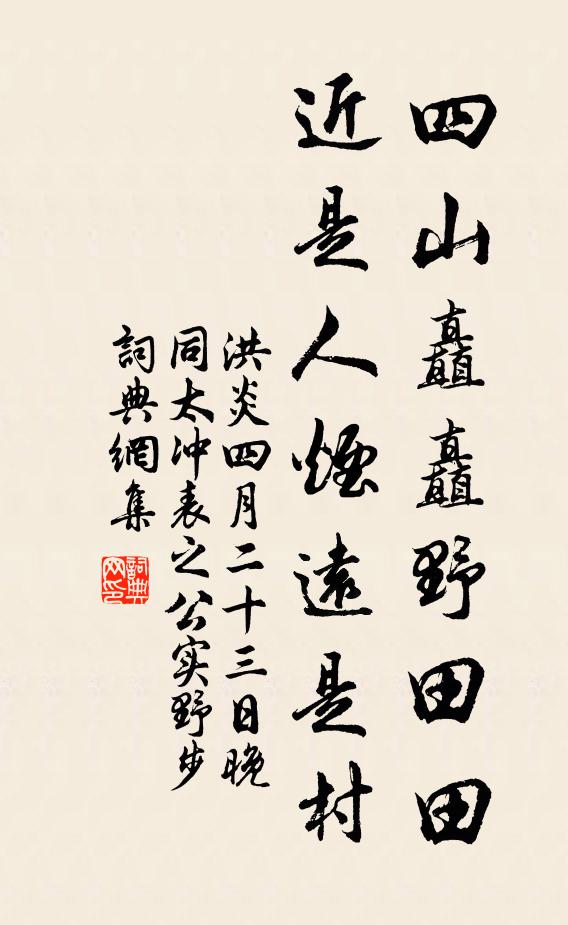 四山矗矗野田田
近是人煙遠是村
洪炎四月二十三日晚
同太冲表之公实野步
詞典網集
詞典网印